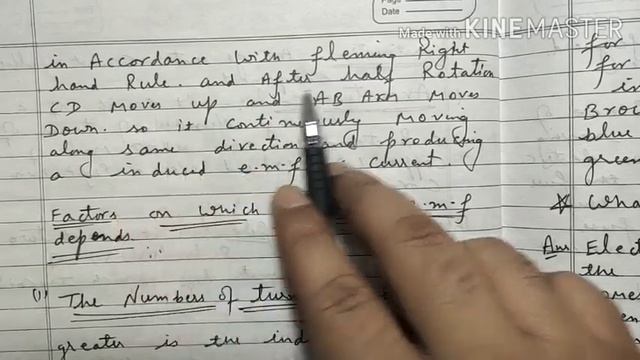 Page
Date
Made with KINEMASTER
in Accordance with fleming Right
hand Rule. and After half Rotation
CD Moves up and AB Arm Moves
Down. so it continuously Moving
along same direction and producing
a induced e.m.f current.
Factors on which e.m.f
depends
(1) The Numbers of turn
greater is the ind
for
for
in
Bro
blue
green
* Wha
Ans Elect
the
come